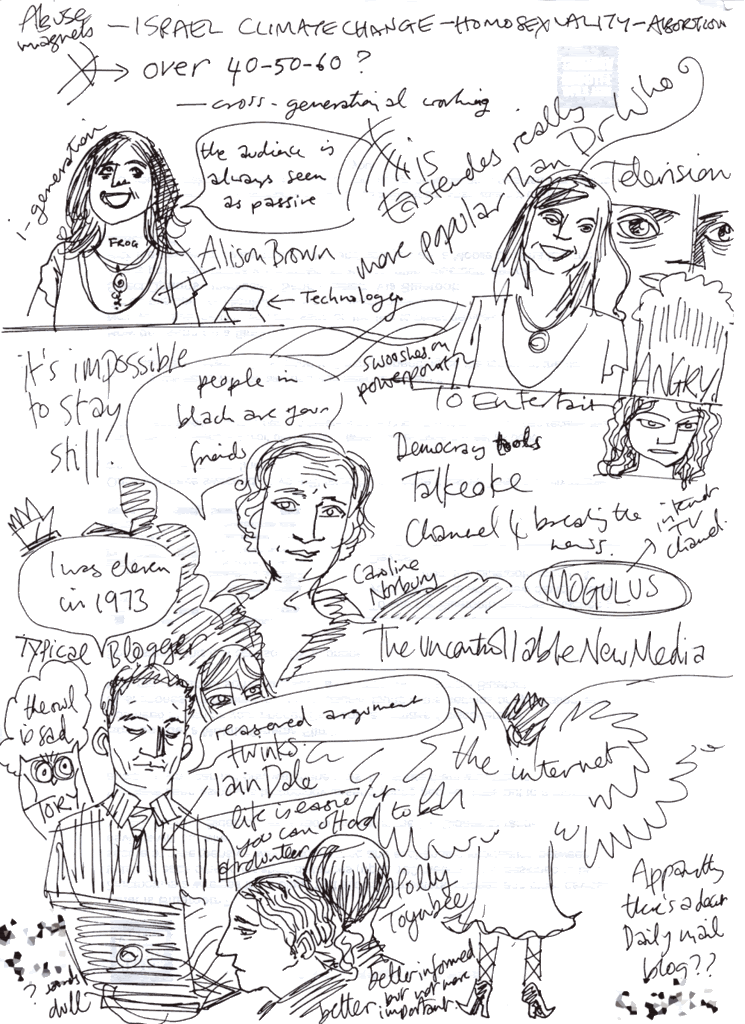 Abuse magnets
- ISRAEL CLIMATE CHANGE - HOMOSEXUALITY - ABORTION
over 40-50-60?
- cross-generational working
i-generation
the audience is
always seen
as passive
FROG
Alison Brown
← Technology
is Eastenders really
more popular than Dr Who
Television
it's impossible
to stay
still.
swooshes on
powerpoint
ANGRY
TO Entertain
people in
black are your
friends
Democracy tools
Talkaoke
Channel 4 breaking the
news.
internet
TV
channel
MOGULUS
Caroline
Norbury
I was eleven
in 1973
Typical Blogger
The uncontrollable New Media
the owl
is sad
TORY
reasoned argument
twinks
Iain Dale
life is easier if
you can afford to be
a volunteer
the internet
Polly
Toynbee
better informed
but not more
important.
better
Apparently
there's a dear
Daily mail
blog??
? sounds
dull